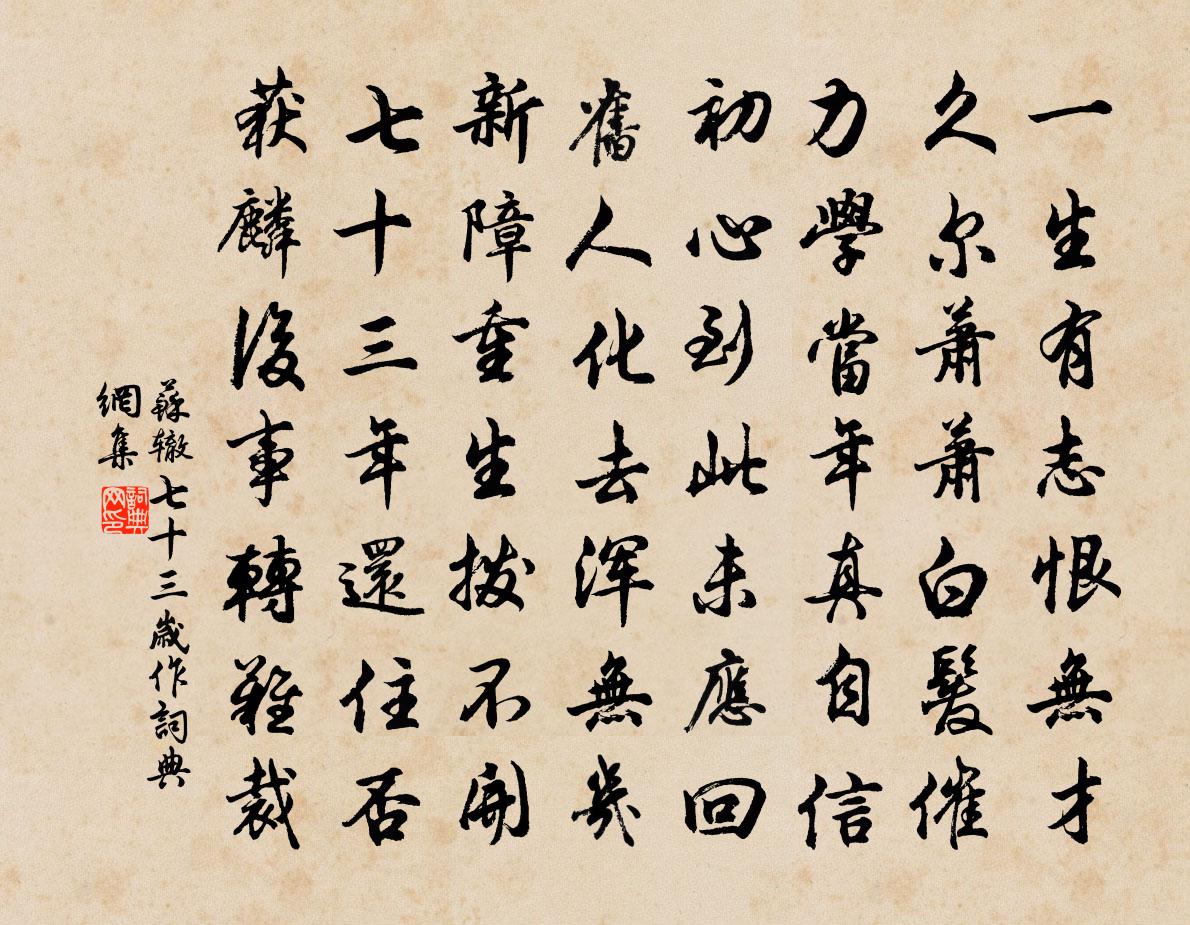 一生有志恨無才
久尔蕭蕭白髮催
力學當年真自信
初心到此未應回
舊人化去渾無幾
新障重生撥不開
七十三年還住否
获麟後事轉難裁
蘇辙七十三歲作詞典
網集
詞典
网印